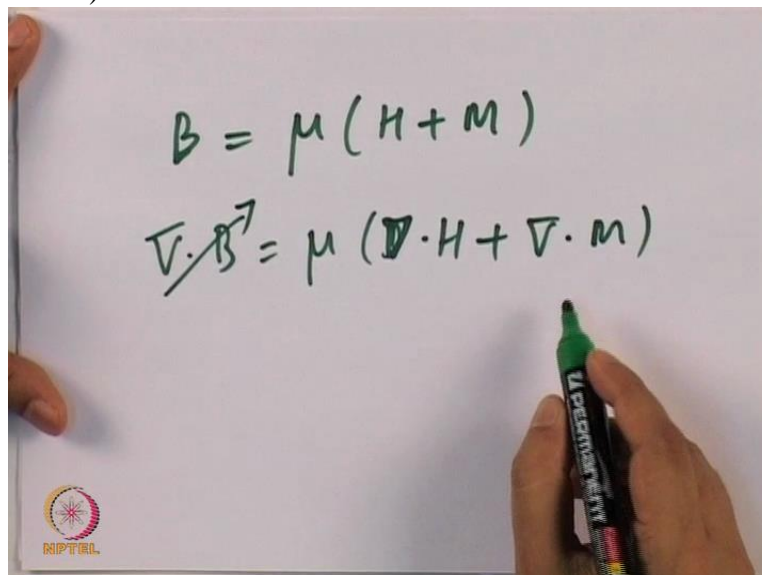 )
B = μ ( H + M )
∇ · B = μ ( ∇ · H + ∇ · M )
PERMANENT
NPTEL